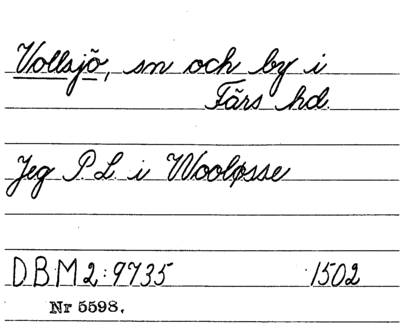 Vollsjö, sn och by i
Färs hd.
Jeg P L i Wooløsse
DBM 2:9735 1502
Nr 5598.